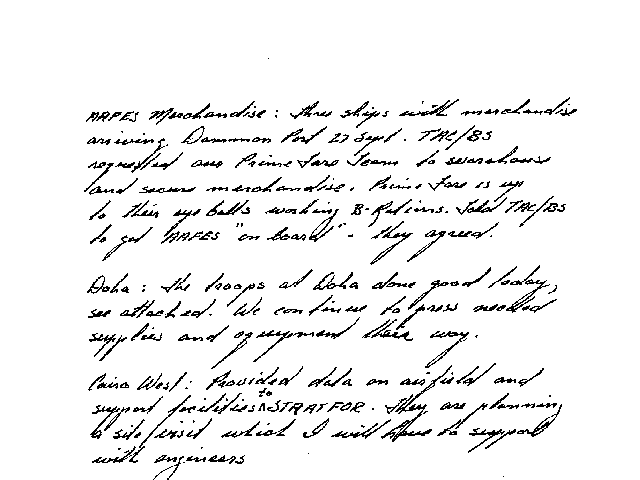 AAFES Merchandise: three ships with merchandise
arriving Dammon Port 27 Sept. TAC/BS
requested our Prime Fare Team to warehouse
and secure merchandise. Prime Fare is up
to their eyeballs working B-Rations. Told TAC/BS
to get AAFES "on board" - they agreed.
Doha: the troops at Doha done good today,
see attached. We continue to press needed
supplies and equipment their way.
Cairo West: Provided data on airfield and
support facilities to STRATFOR. They are planning
a site visit which I will have to support
with engineers